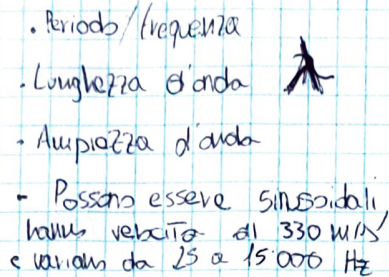 . Periodo/frequenza
. Lunghezza d'onda
. Ampiezza d'onda
- Possono essere sinusoidali,
hanno velocità di 330 m/s
e variano da 25 a 15000 Hz